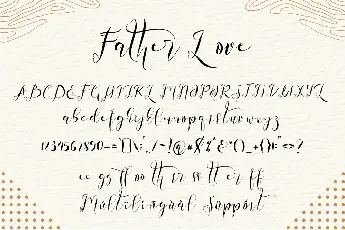 Father Love
ABCDEFGHIJKL MNOPQRSTUVWXYZ
abcdefghijklmnopqrstuvwxyz
ee gg ff oo th ir ss tt er ff
Multilingual Support